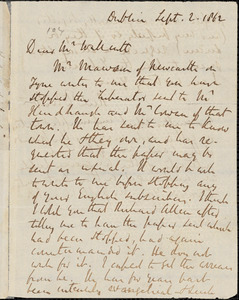 Dublin Sept. 2. 1862
Dear Mr Wallcutt
Mr Mawson of Newcastle on
Tyne writes to me that you have
stopped the Liberator sent to Mr
Hindhaugh and Mr Cowen of that
town. He has sent to me to know
what he & they owe, and has re-
quested that the paper may be
sent as usual. It would be well
to write to me before stopping any
of your English subscribers. I think
I told you that Richard Allen after
telling me to have the paper sent which
had been stopped, had again
countermanded it. He does not
wish for it. I asked to get the arrears
from him. He has for years past
been intensely evangelical